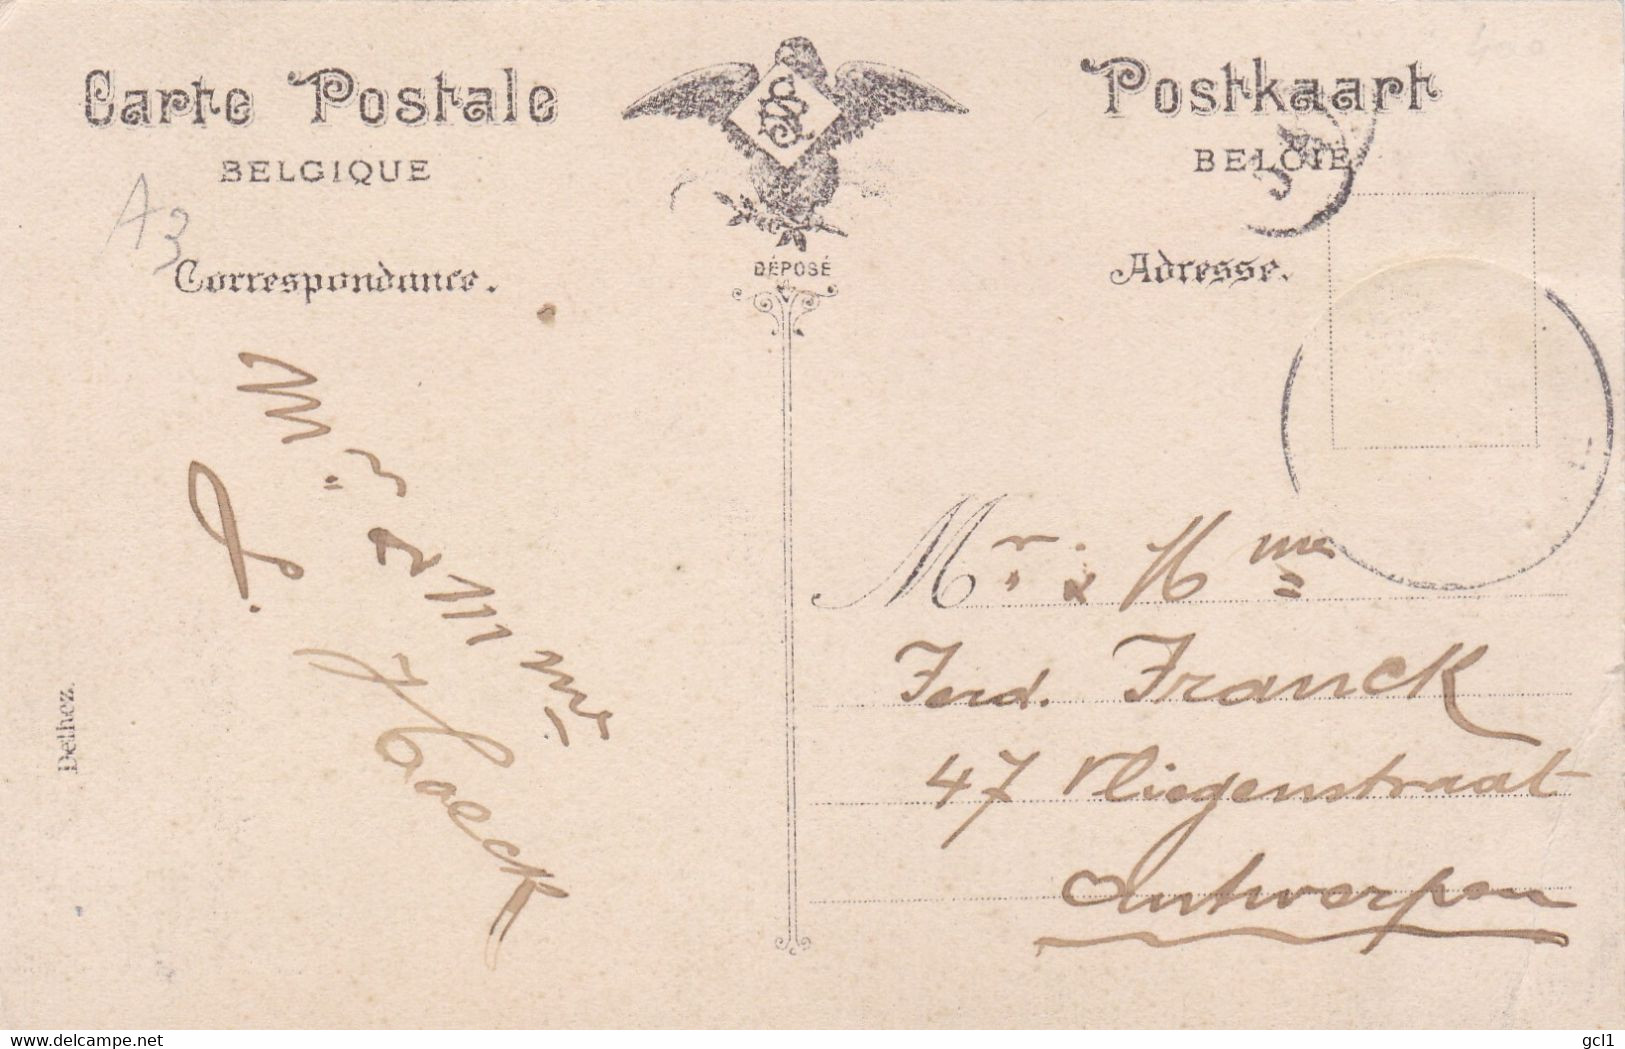 Carte Postale
BELGIQUE
Postkaart
BELGIE
A3
Correspondance.
DÉPOSÉ
Adresse.
Mr & Mme
J. Haeck
Delhez.
Mr. & Mme
Ferd. Franck
47 Vliegenstraat
Antwerpen
delcampe.net
gcl1